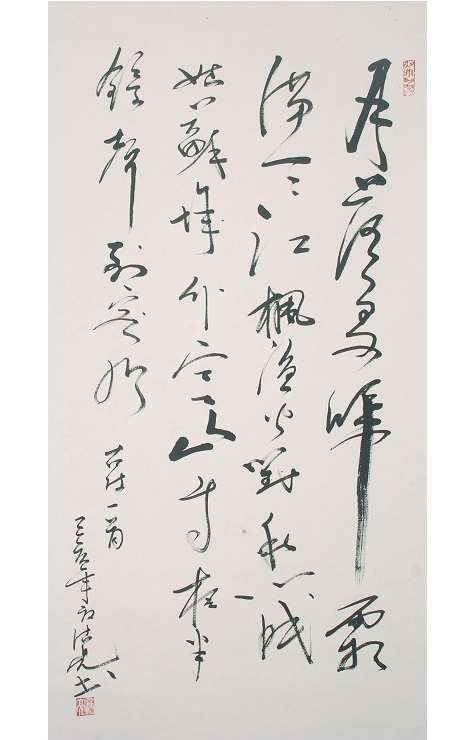 月落烏啼霜
滿天江楓漁火對愁眠
姑蘇城外寒山寺夜半
鐘聲到客船
古诗一首